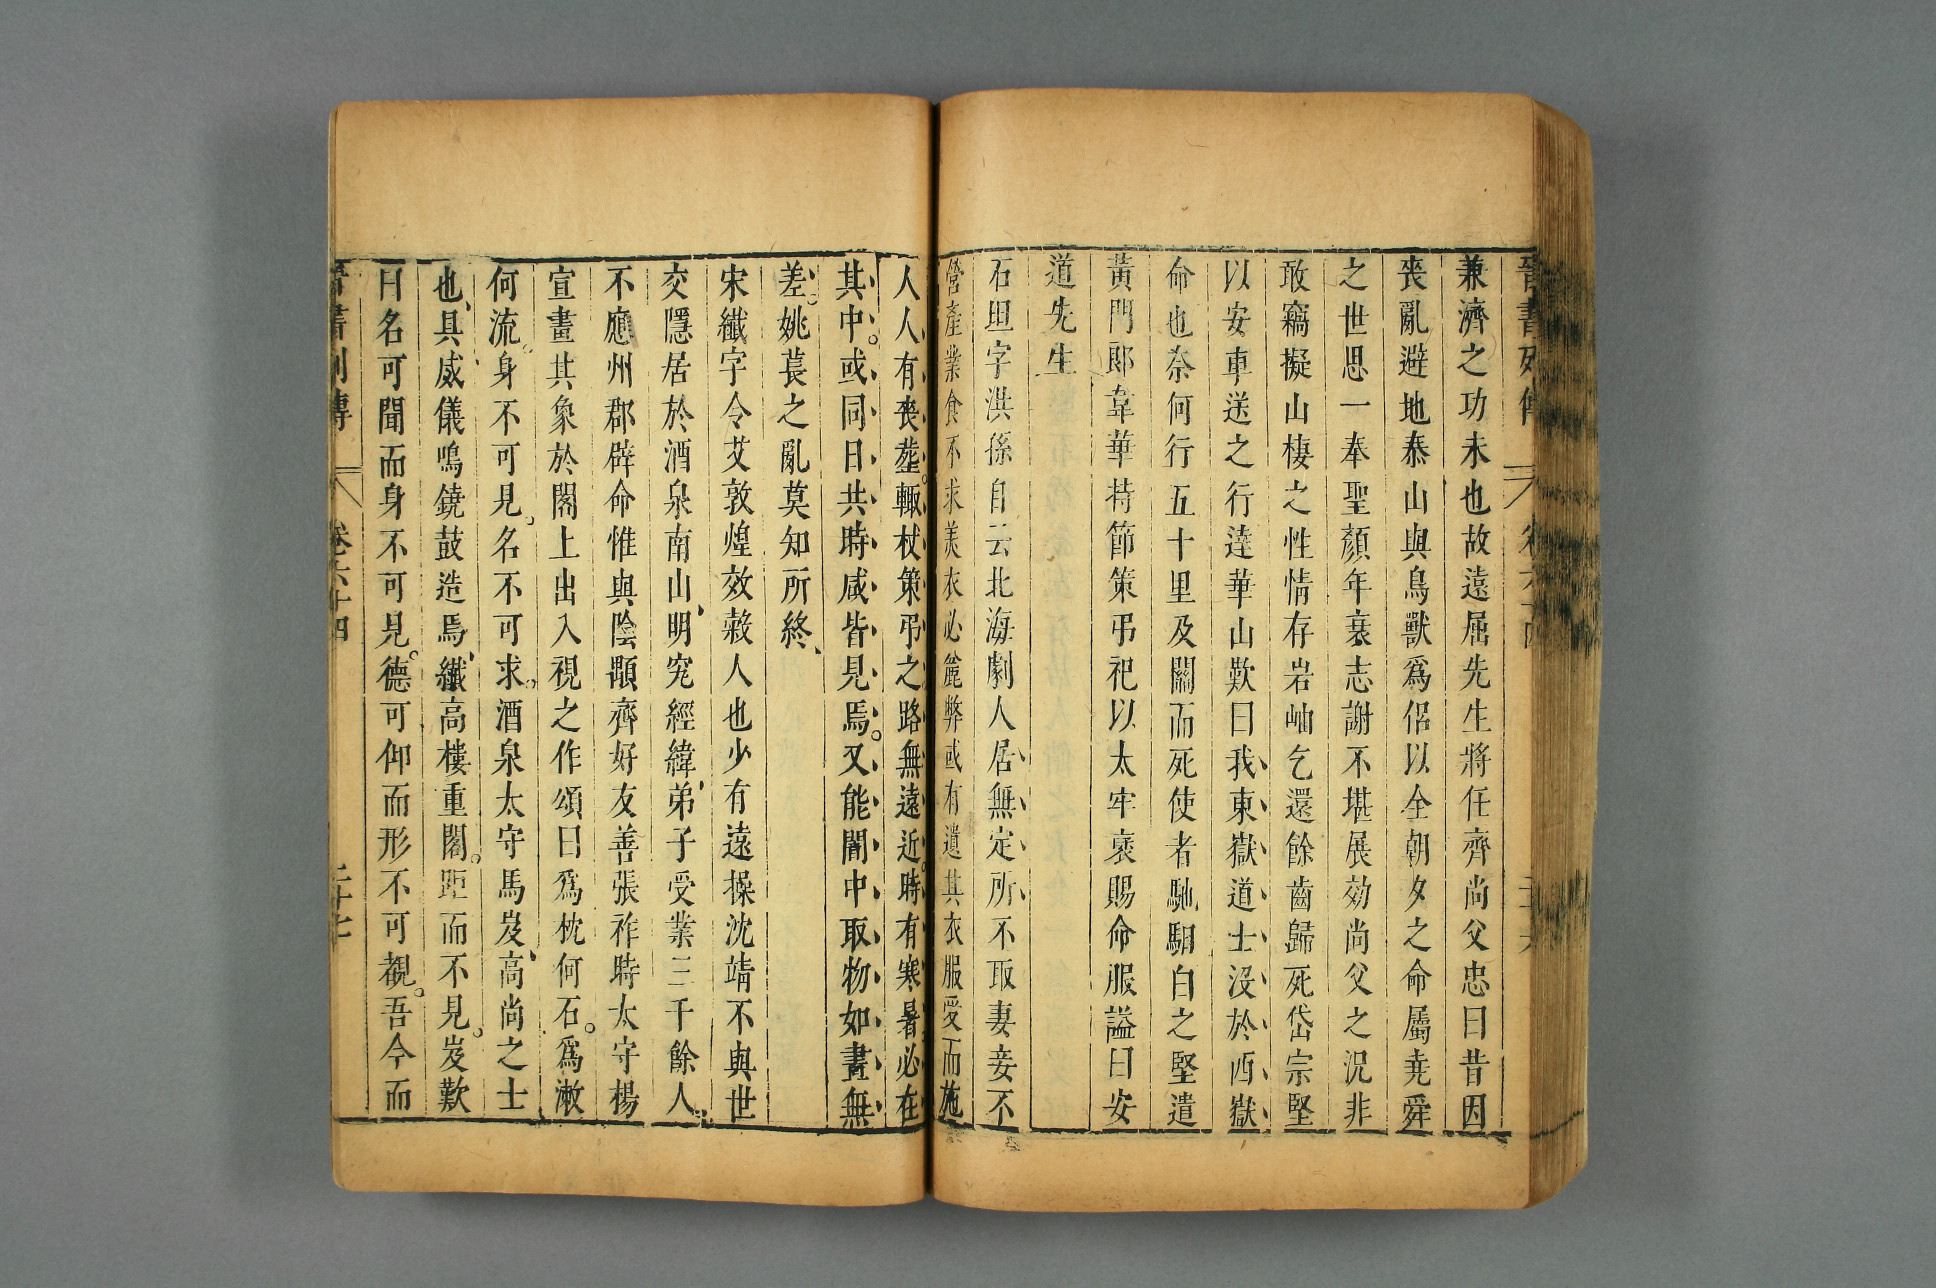 晉書列傳 卷六十四 三十六
兼濟之功未也故遠屈先生將任齊尚父忠曰昔因
喪亂避地泰山與鳥獸爲侣以全朝夕之命屬堯舜
之世思一奉聖顏年衰志謝不堪展効尚父之況非
敢竊擬山棲之性情存岩岫乞還餘齒歸死岱宗堅
以安車送之行達華山歎曰我東嶽道士没於西嶽
命也奈何行五十里及關而死使者馳驲白之堅遣
黃門郎韋華持節策弔祀以太牢褒賜命服謚曰安
道先生
石坦字洪孫自云北海劇人居無定所不取妻妾不
營產業食不求美衣必麄弊或有遺其衣服受而施
人人有喪葬。輙杖策弔之路無遠近。時有寒暑必在
其中。或同日共時咸皆見焉。又能闇中取物如晝無
差。姚萇之亂莫知所終、
宋纖字令艾敦煌效榖人也少有遠操沈靖不與世
交隱居於酒泉南山、明究經緯、弟子受業三千餘人、
不應州郡辟命惟與陰顒齊好友善張祚時太守楊
宣畫其象於閣上出入視之作頌曰爲枕何石。爲漱
何流。身不可見。名不可求。酒泉太守馬岌、高尚之士
也、具威儀鳴鐃鼓造焉、纖高樓重閣。距而不見。岌歎
曰名可聞而身不可見。德可仰而形不可覩。吾今而
晉書列傳 卷六十四 三十七